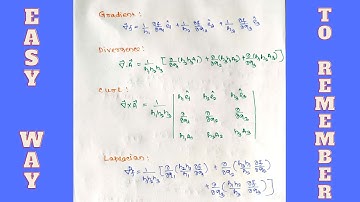 EASY WAY
Gradient:
∇f = 1/h₁ ∂f/∂q₁ ê₁ + 1/h₂ ∂f/∂q₂ ê₂ + 1/h₃ ∂f/∂q₃ ê₃
Divergence:
∇·A⃗ = 1/h₁h₂h₃ [∂/∂q₁(h₂h₃A₁) + ∂/∂q₂(h₃h₁A₂) + ∂/∂q₃(h₁h₂A₃)]
Curl:
∇×A⃗ = 1/h₁h₂h₃ | h₁ê₁ h₂ê₂ h₃ê₃ |
| ∂/∂q₁ ∂/∂q₂ ∂/∂q₃ |
| h₁A₁ h₂A₂ h₃A₃ |
Laplacian:
∇²f = 1/h₁h₂h₃ [∂/∂q₁(h₂h₃/h₁ ∂f/∂q₁) + ∂/∂q₂(h₃h₁/h₂ ∂f/∂q₂)
+ ∂/∂q₃(h₁h₂/h₃ ∂f/∂q₃)]
TO REMEMBER